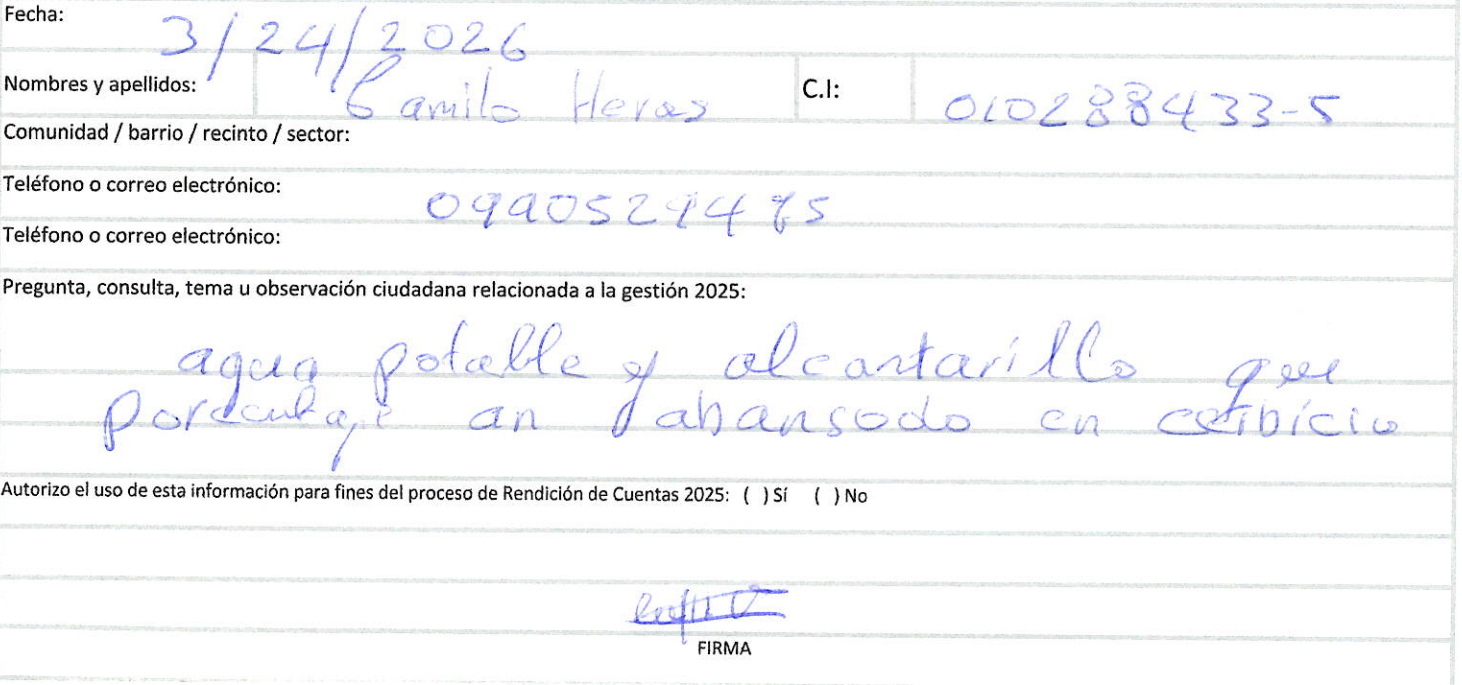 Fecha: 3/24/2026
Nombres y apellidos: Camilo Heras C.I: 010288433-5
Comunidad / barrio / recinto / sector:
Teléfono o correo electrónico: 0990529475
Teléfono o correo electrónico:
Pregunta, consulta, tema u observación ciudadana relacionada a la gestión 2025:
agua potable y alcantarillo que
porcentaje an abansodo en cerbicio
Autorizo el uso de esta información para fines del proceso de Rendición de Cuentas 2025: ( ) Sí ( ) No
FIRMA